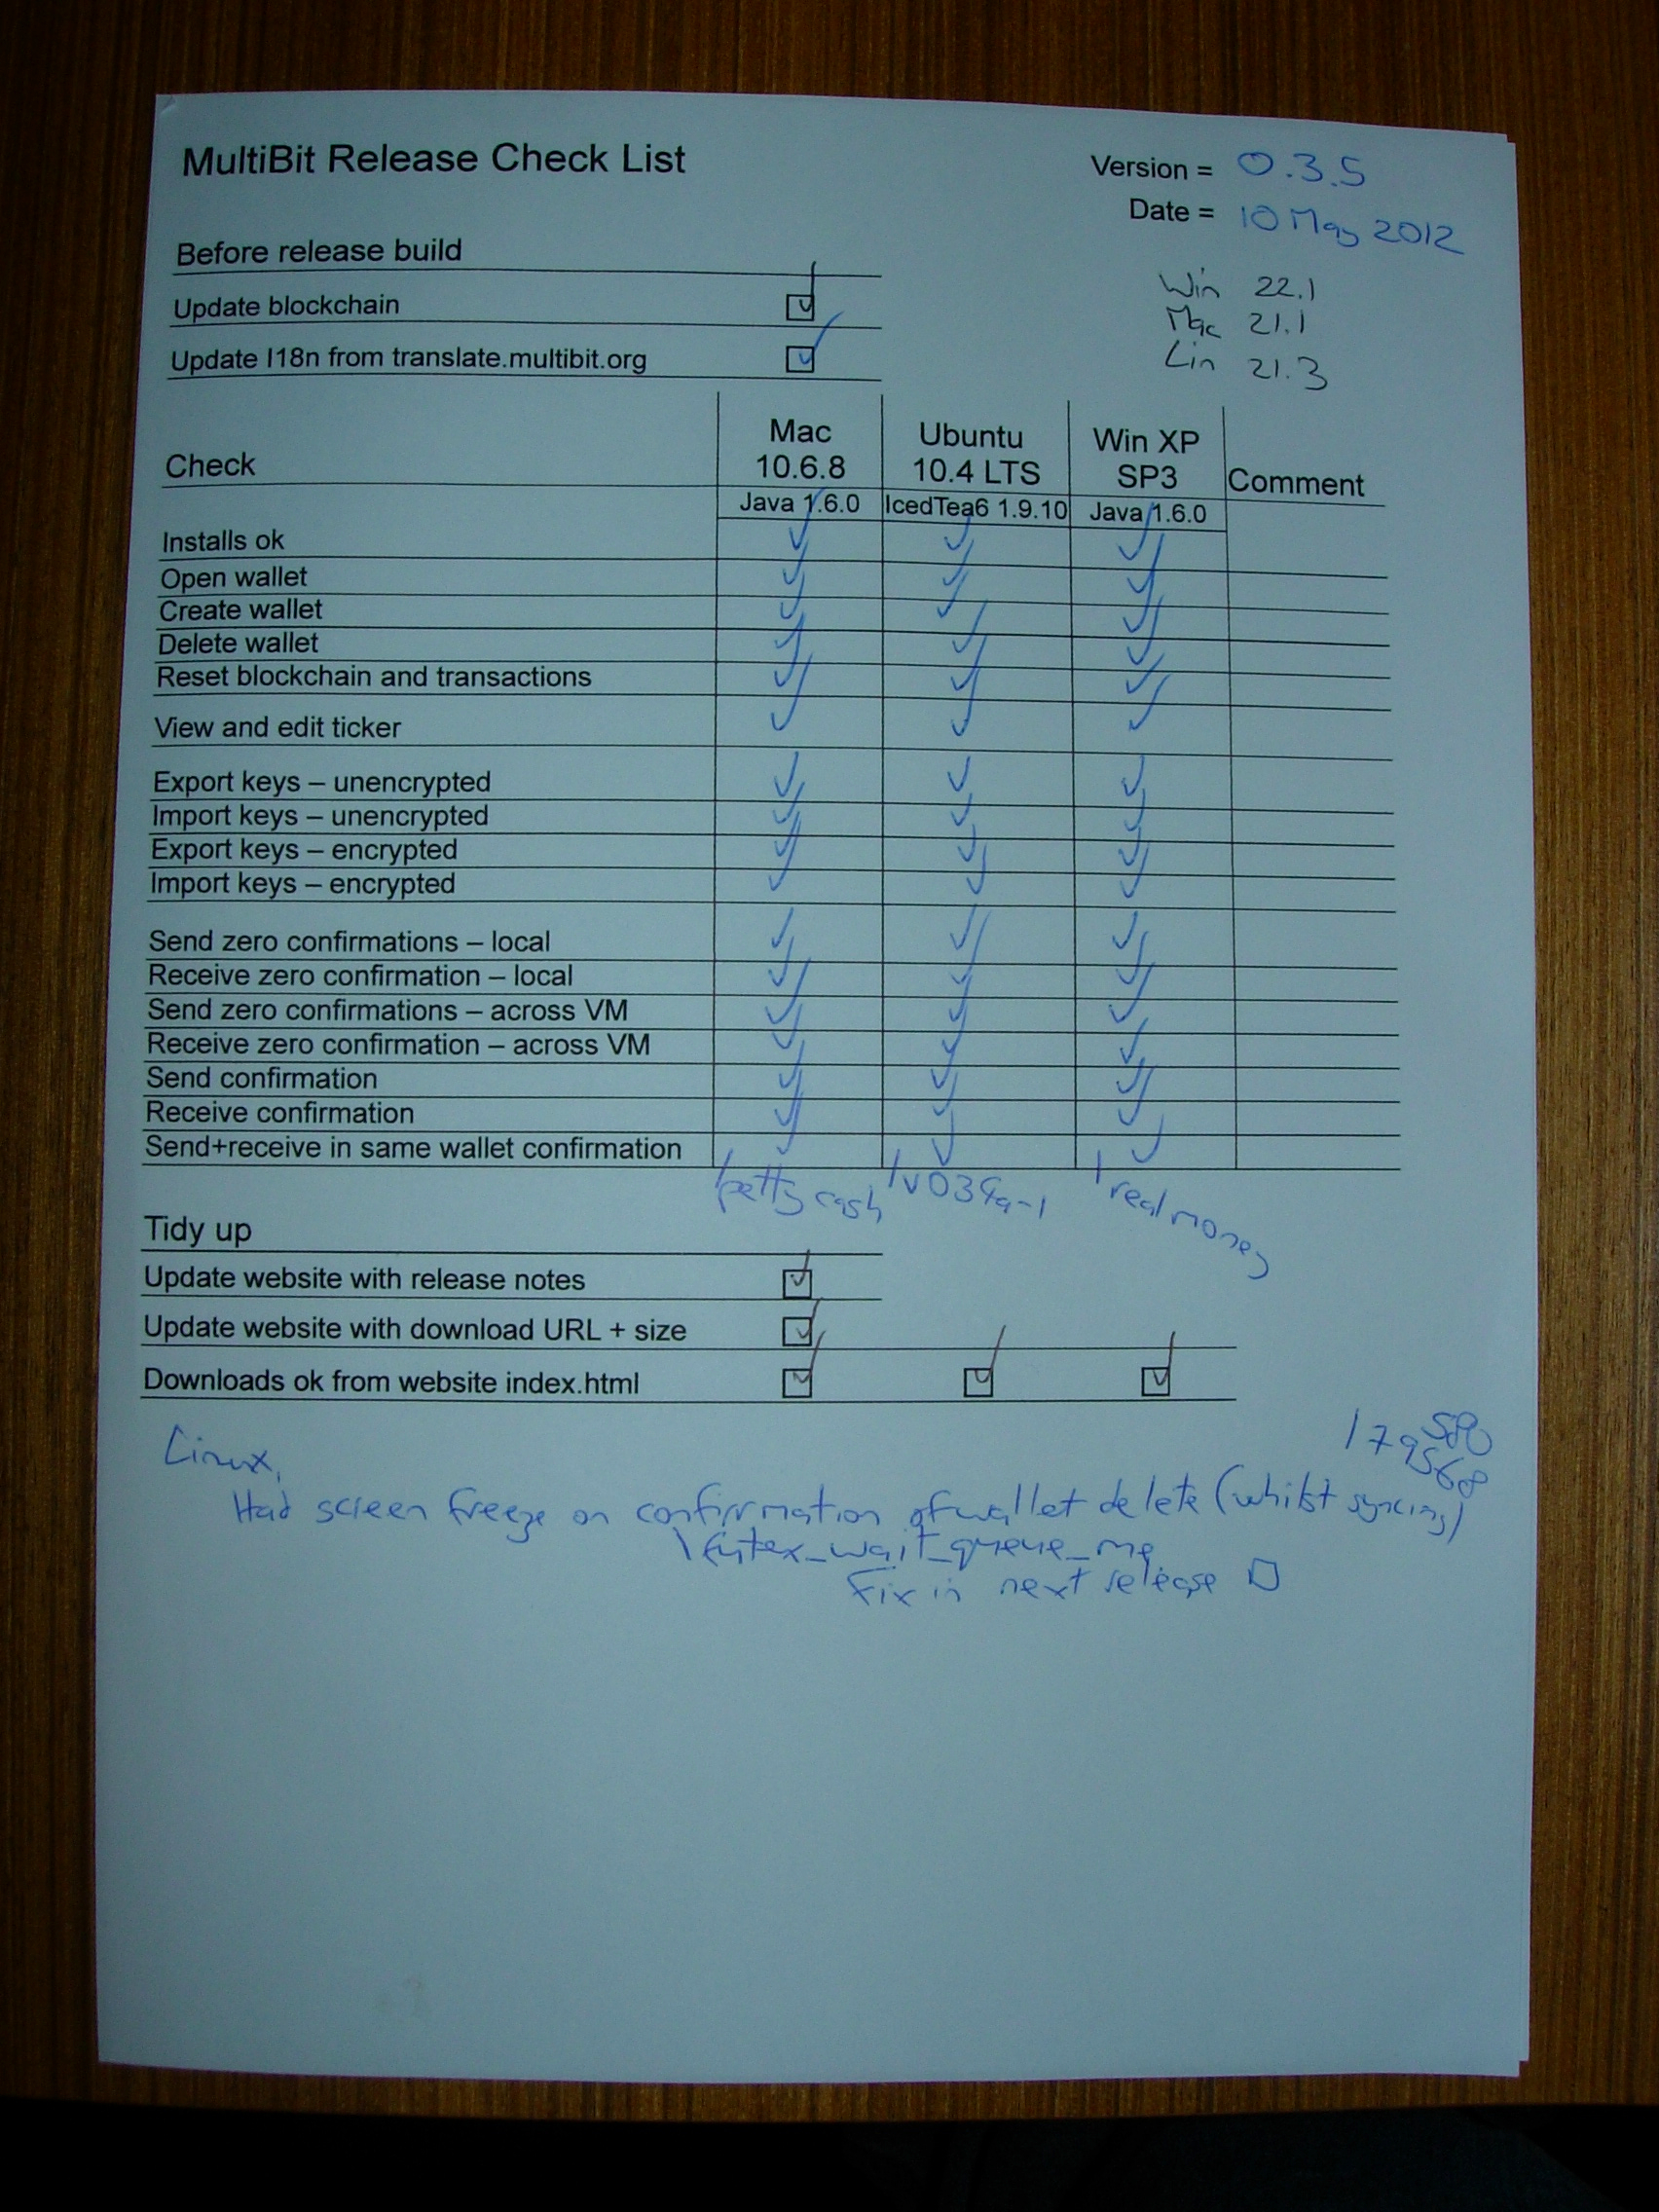 MultiBit Release Check List
Version = 0.3.5
Date = 10 May 2012
Before release build
Update blockchain
Update I18n from translate.multibit.org
Win 22.1
Mac 21.1
Lin 21.3
Check
Mac 10.6.8
Ubuntu 10.4 LTS
Win XP SP3
Comment
Java 1.6.0 IcedTea6 1.9.10 Java 1.6.0
Installs ok
Open wallet
Create wallet
Delete wallet
Reset blockchain and transactions
View and edit ticker
Export keys – unencrypted
Import keys – unencrypted
Export keys – encrypted
Import keys – encrypted
Send zero confirmations – local
Receive zero confirmation – local
Send zero confirmations – across VM
Receive zero confirmation – across VM
Send confirmation
Receive confirmation
Send+receive in same wallet confirmation
petty cash
real money
Tidy up
Update website with release notes
Update website with download URL + size
Downloads ok from website index.html
Linux,
Had screen freeze on confirmation of wallet delete (whilst syncing)
futex_wait_queue_me
Fix in next release